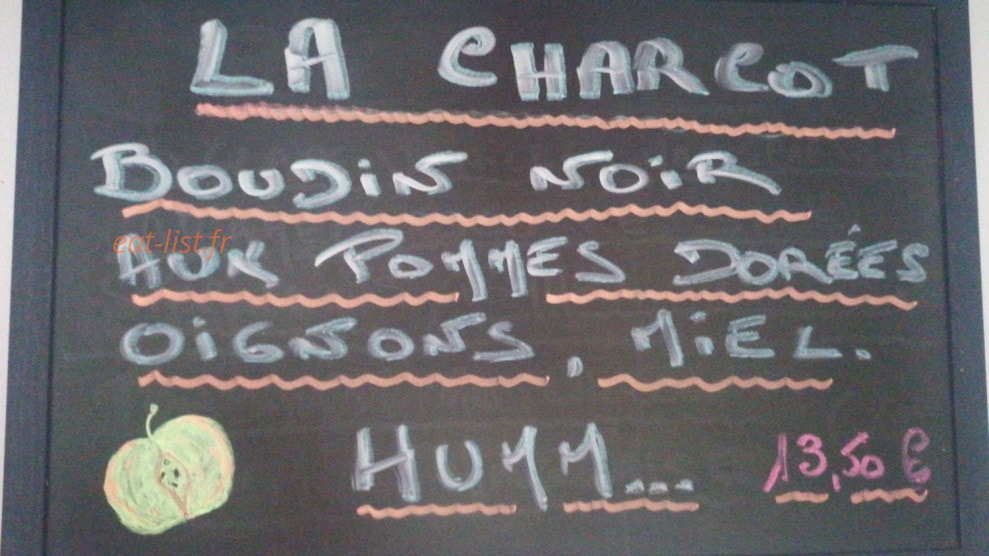 LA CHARCOT
BOUDIN NOIR
eat-list.fr
AUX POMMES DORÉES
OIGNONS, MIEL.
HUMM... 13,50 €